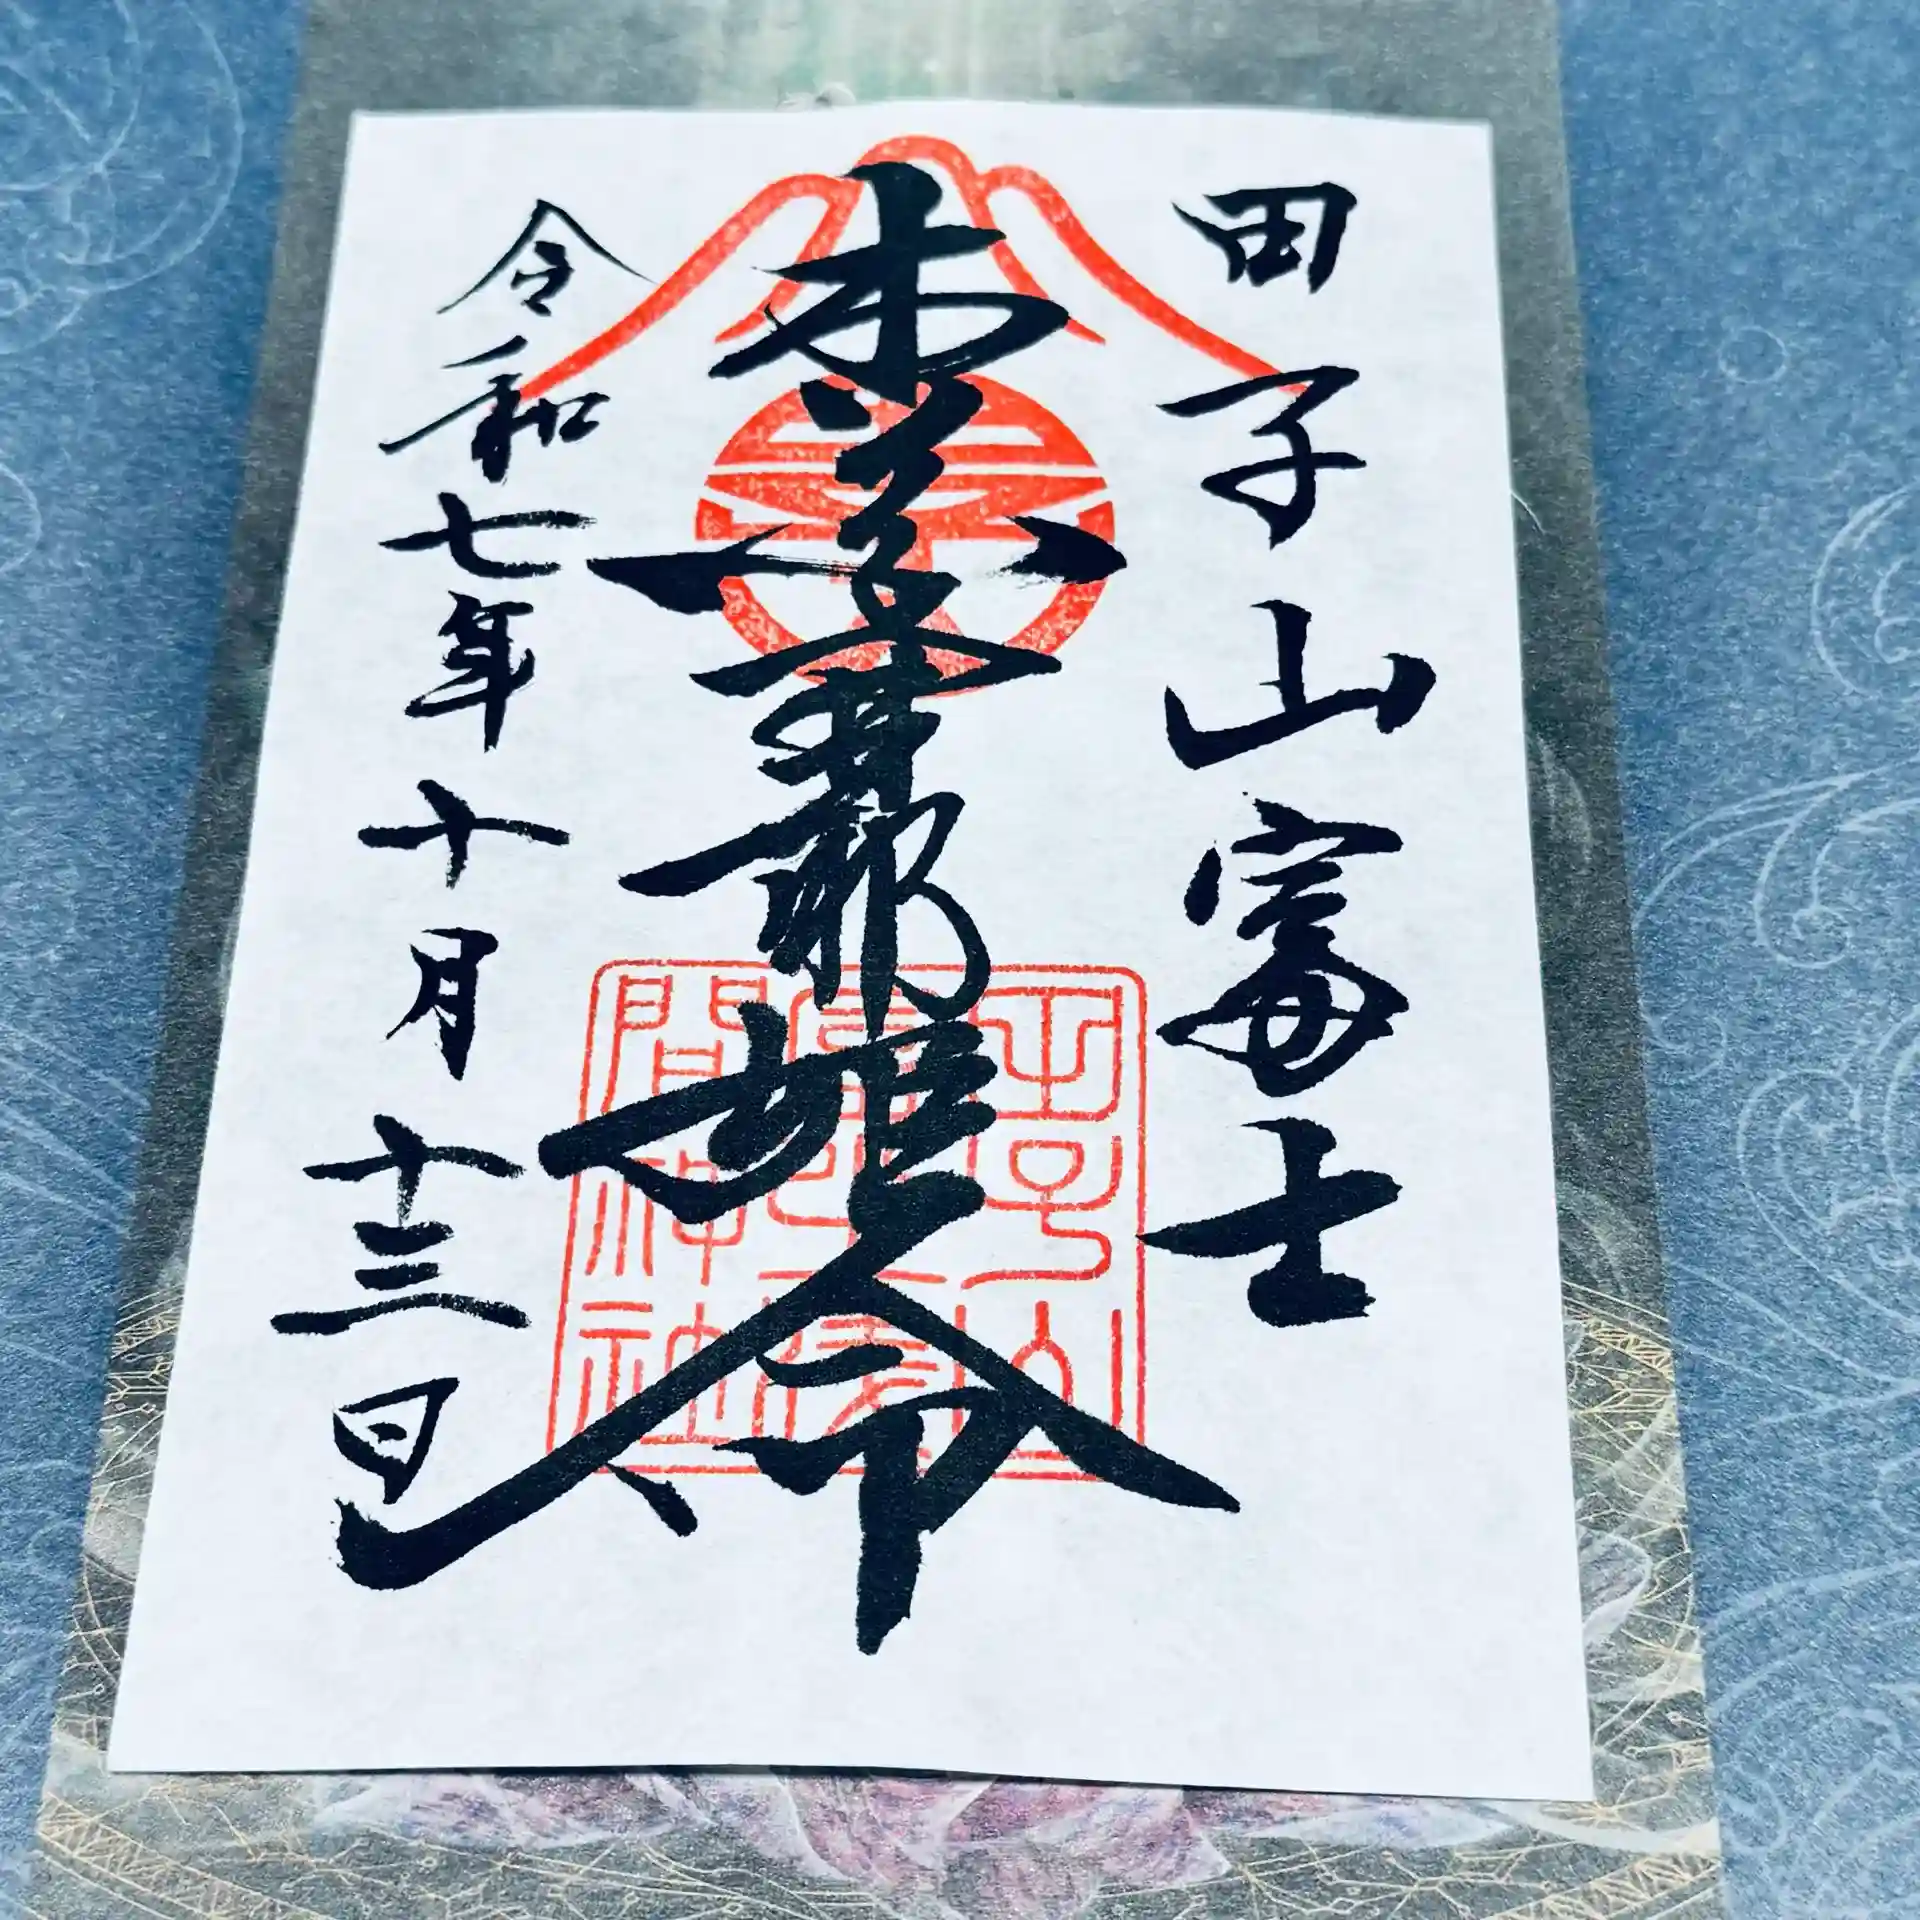 田子山富士
木花開耶姫命
令和七年十月十三日
田子山
富士浅
間神社